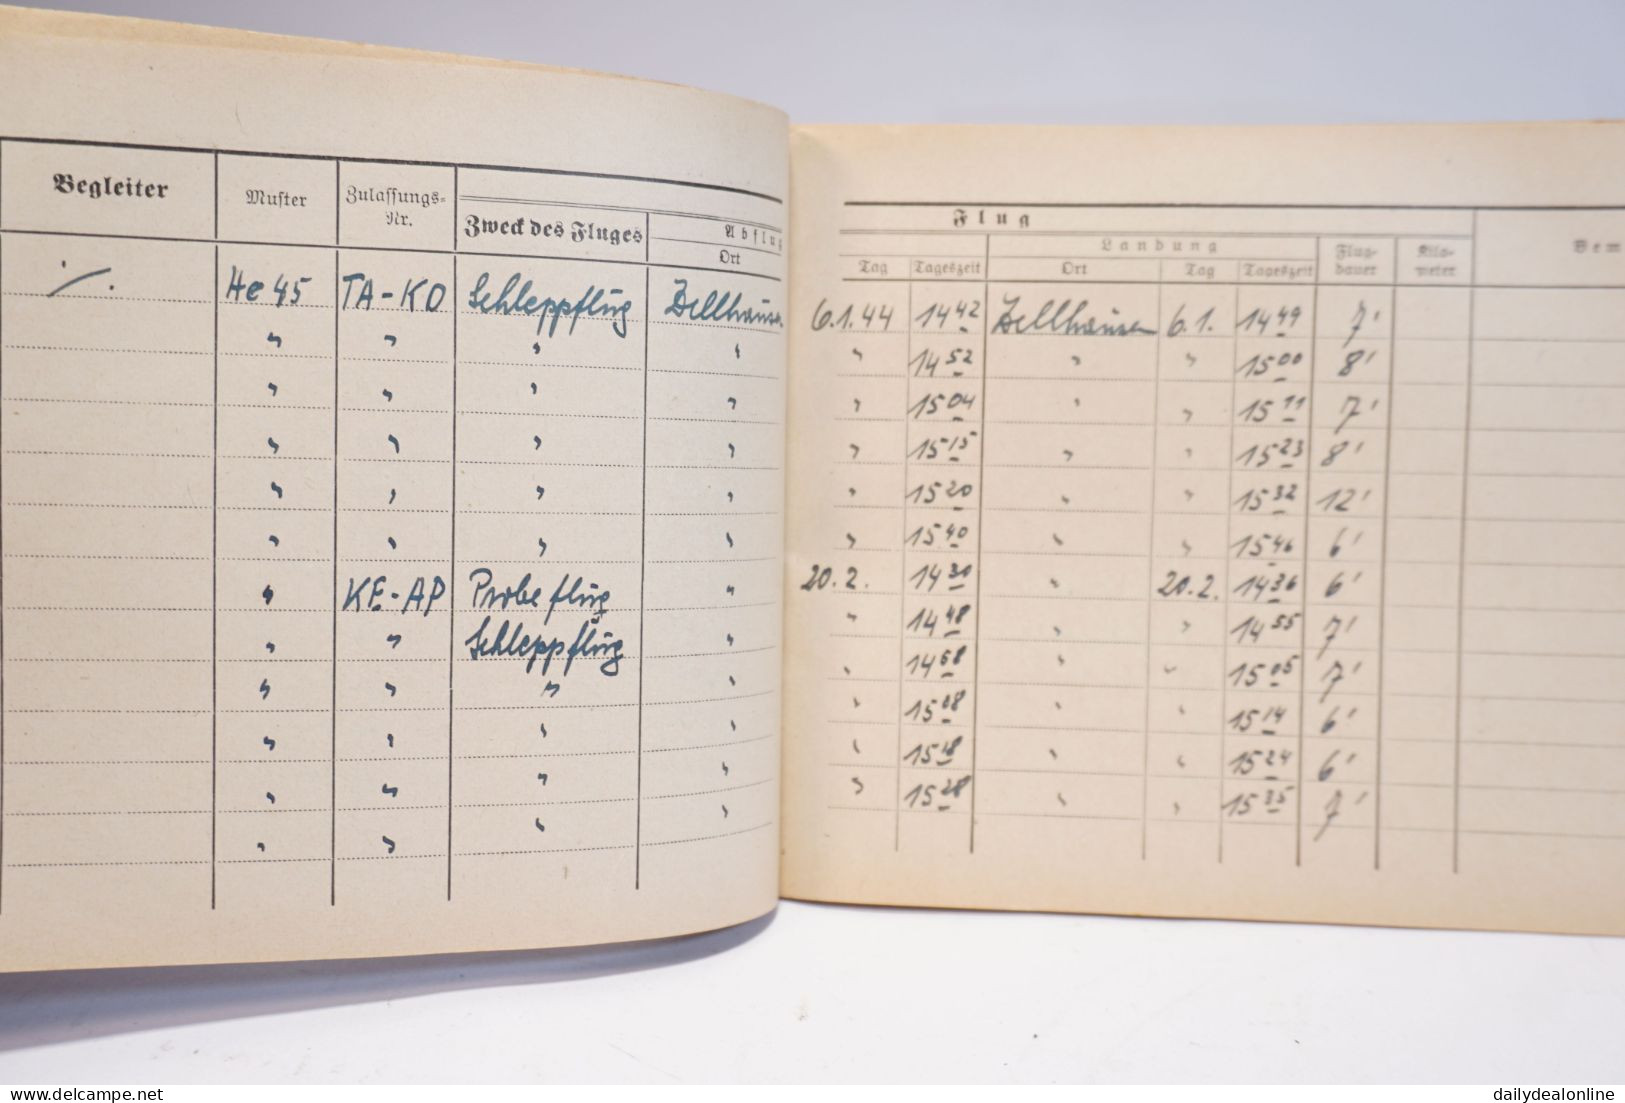 Begleiter Muster Zulassungs-Nr. Zweck des Fluges Abflug Ort Tag Tageszeit Flug Landung Ort Tag Tageszeit Flug-dauer Kilo-meter Bem
·/. He 45 TA-KO Schleppflug Zellhausen 6.1.44 14 42 Zellhausen 6.1. 14 49 7'
" " " " " 14 52 " " 15 00 8'
" " " " " 15 04 " " 15 11 7'
" " " " " 15 15 " " 15 23 8'
" " " " " 15 20 " " 15 32 12'
" " " " " 15 40 " " 15 46 6'
" KE-AP Probeflug " 20.2. 14 30 " 20.2. 14 36 6'
" " Schleppflug " " 14 48 " " 14 55 7'
" " " " " 14 58 " " 15 05 7'
" " " " " 15 08 " " 15 14 6'
" " " " " 15 18 " " 15 24 6'
" " " " " 15 28 " " 15 35 7'
delcampe.net
dailydealonline